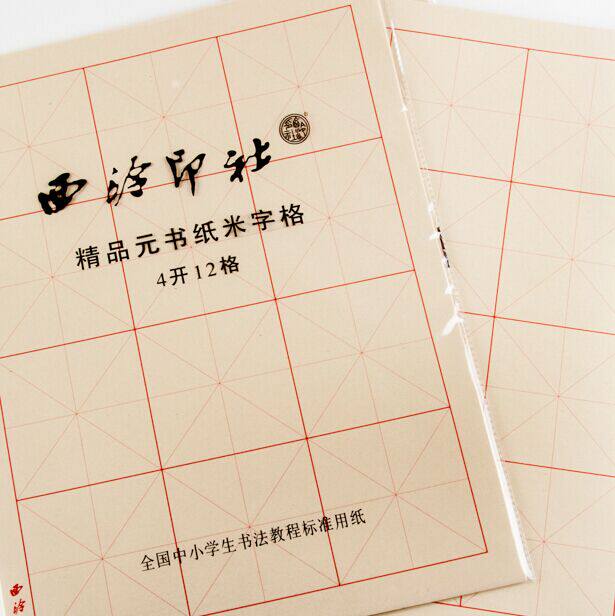 西泠印社
精品元书纸米字格
4开12格
全国中小学生书法教程标准用纸
西泠